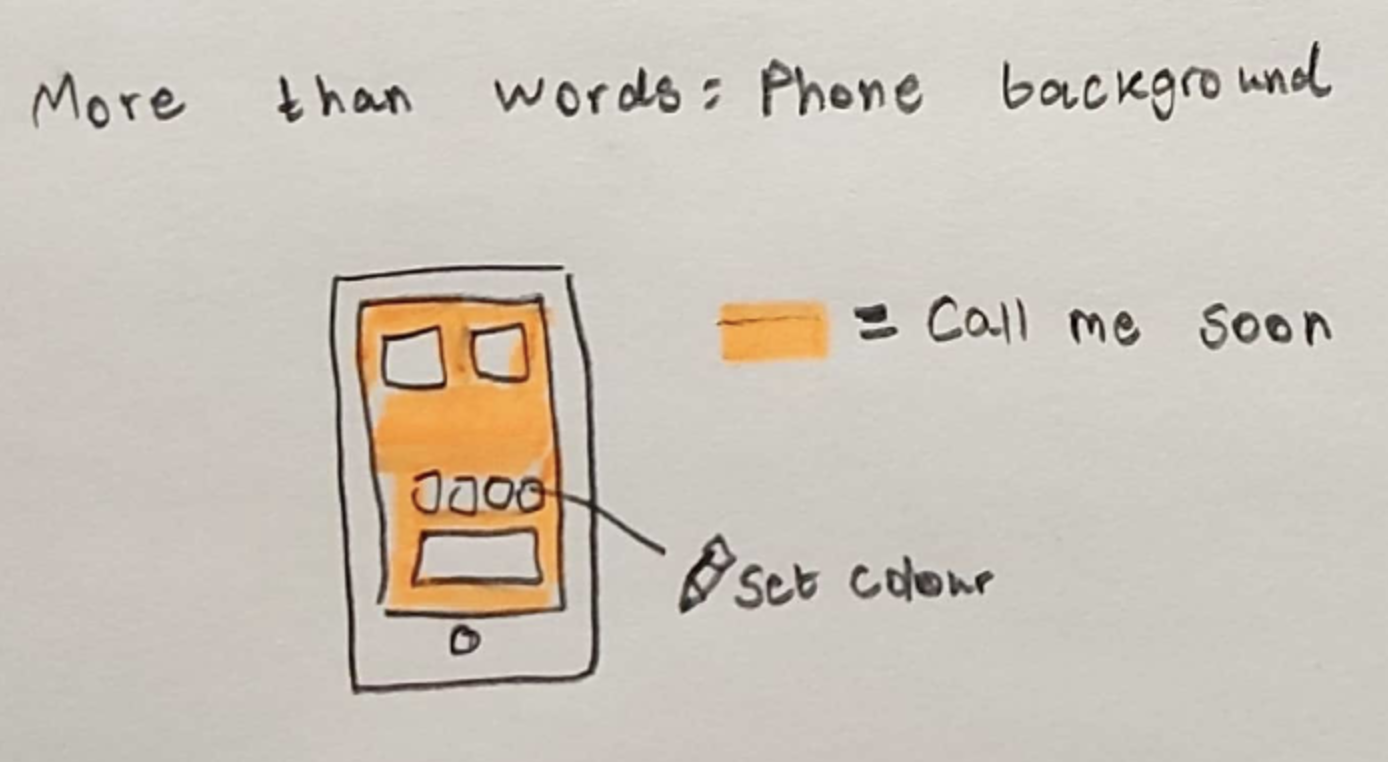 More than words: Phone background
= Call me soon
set colour